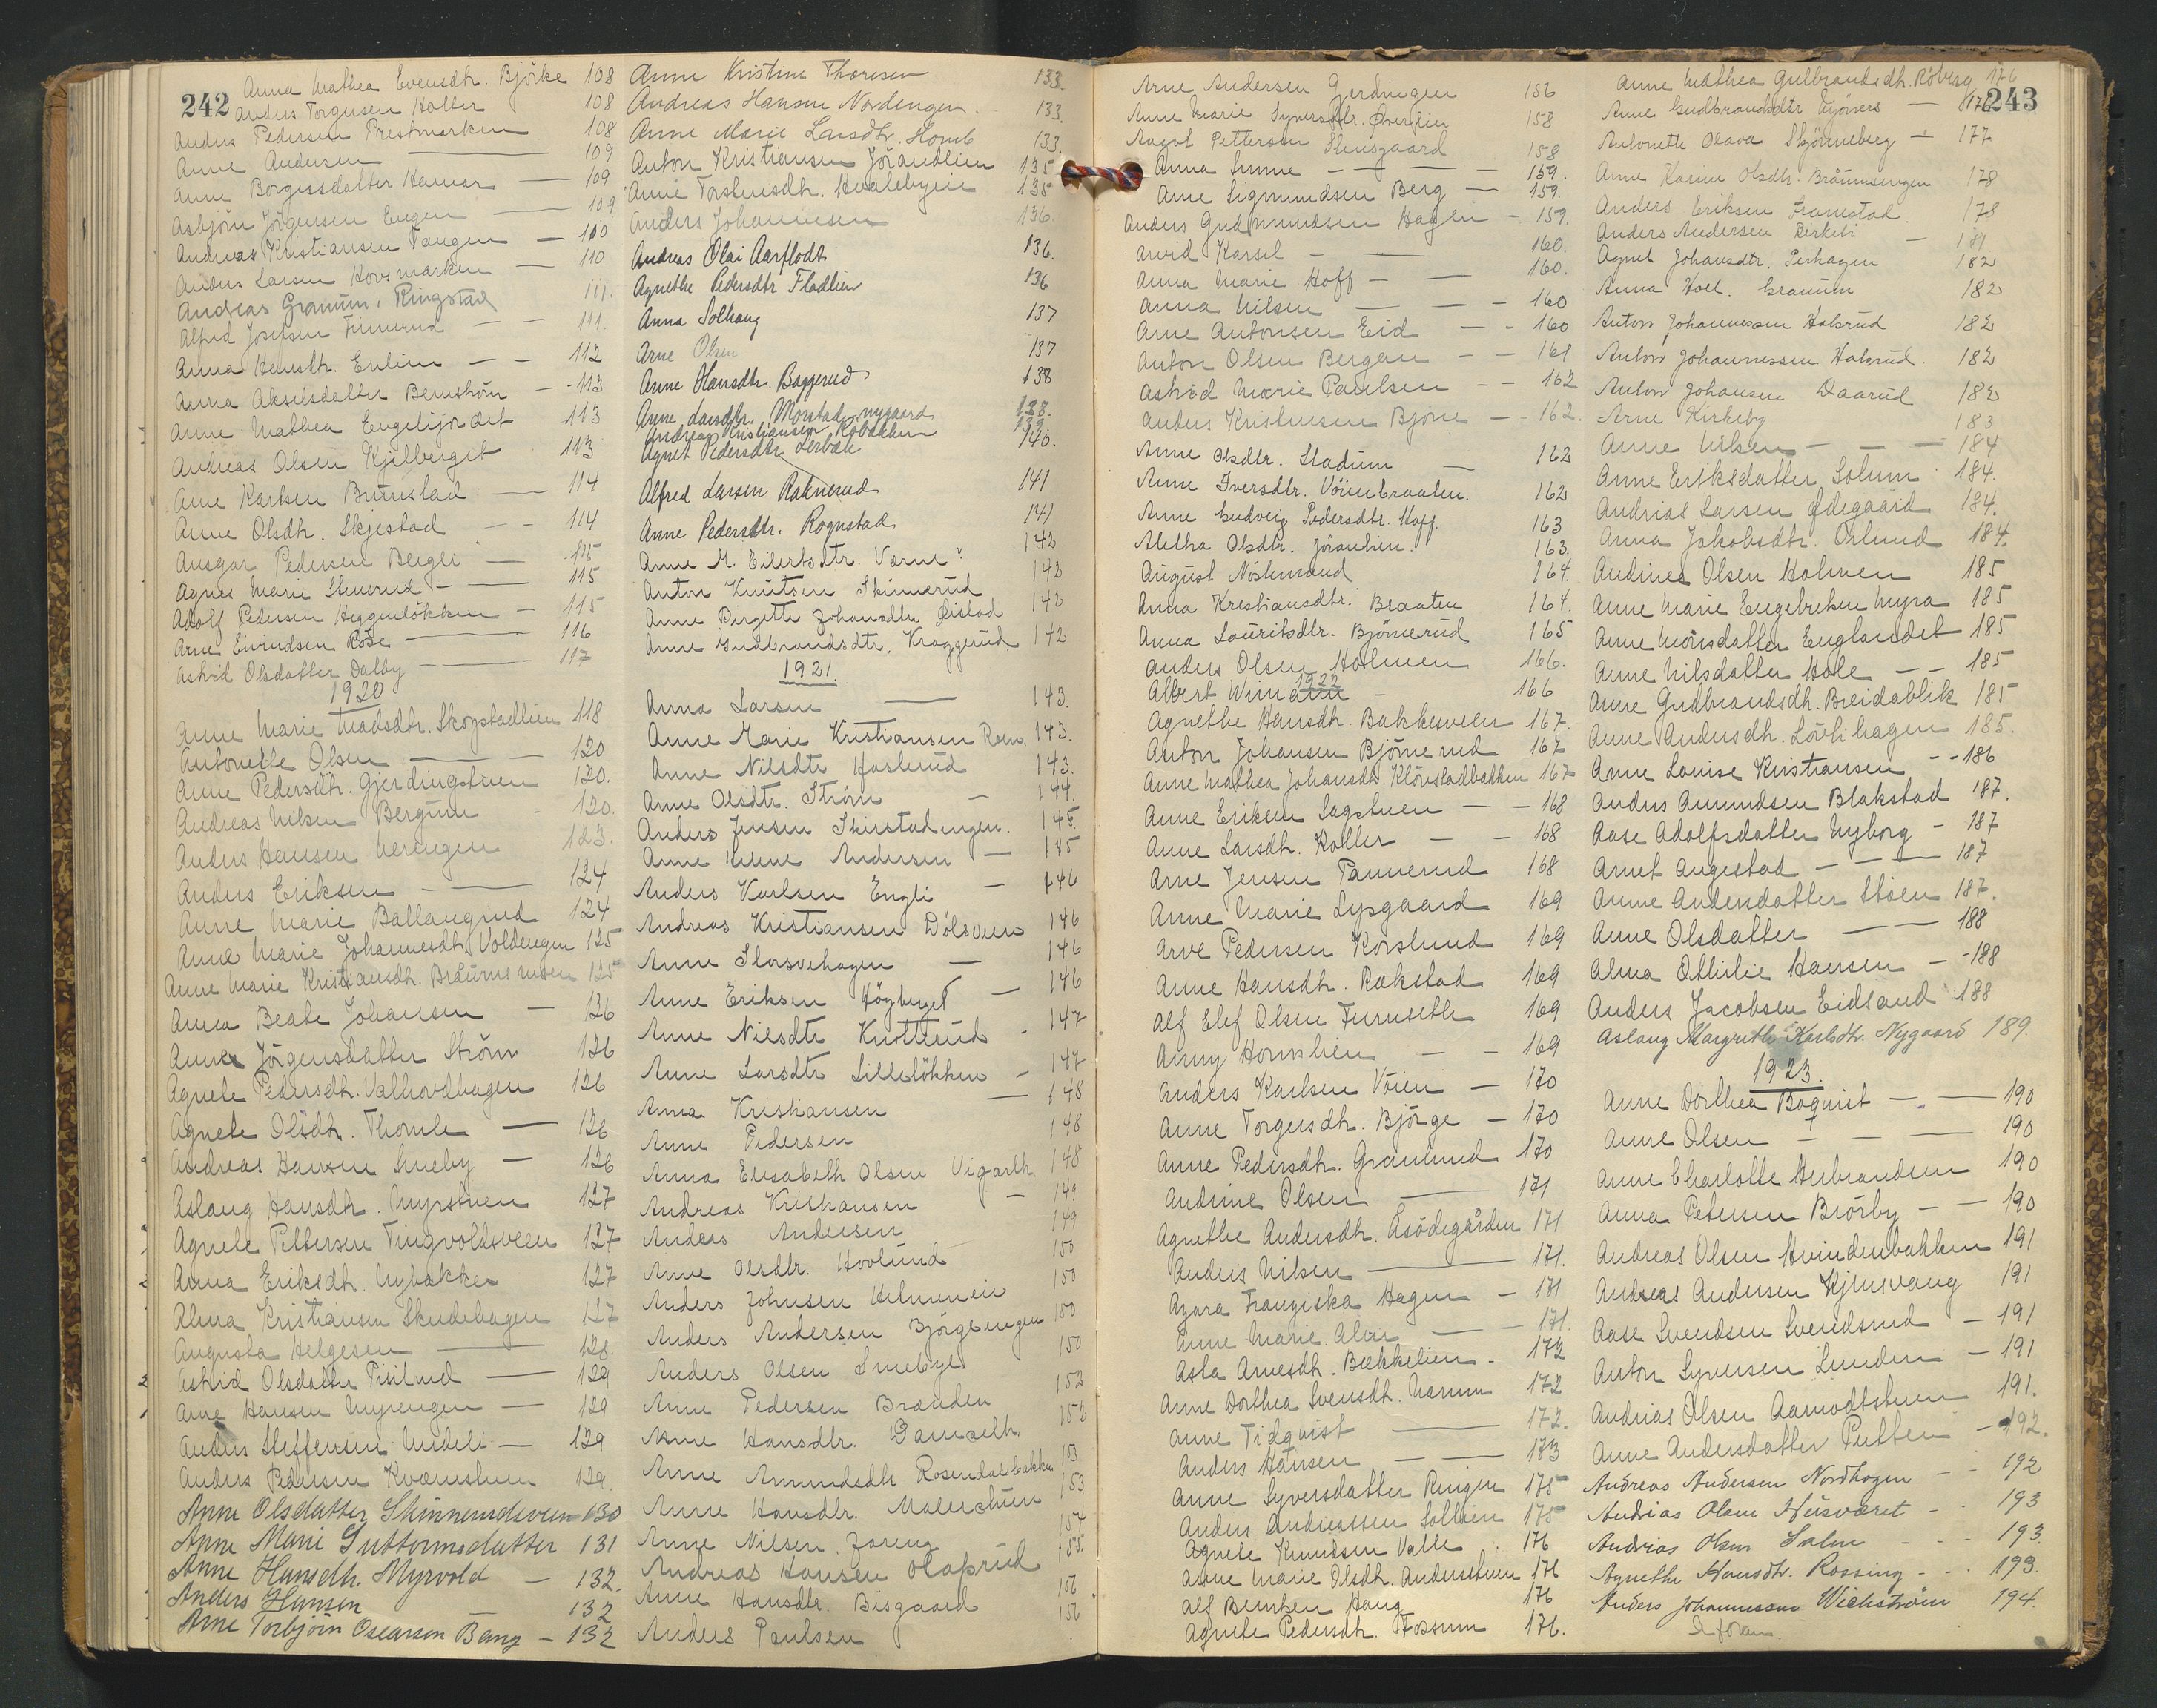 242
Anna Mathea Evensdtr. Björke 108
Anders Torgersen Koller 108
Anders Pedersen Prestmarken 108
Anne Andersen 109
Anne Borgersdatter Hamar 109
Asbjörn Jörgensen Engen 109
Andreas Kristiansen Tangen 110
Anders Larsen Hovsmarken 110
Andreas Granum, Ringstad 111.
Alfred Josefsen Finnerud 111.
Anna Hansdtr. Enlien 112
Anna Akselsdatter Bernström 113
Anne Mathea Engelijordet 113
Andreas Olsen Kjelberget 113
Arne Karlsen Burnstad 114
Anne Olsdtr. Skjestad 114
Ansgar Pedersen Bergli 115
Agnes Marie Stenerud 115
Adolf Pedersen Heggenlökken 115
Arne Eivindsen Rose 116
Astrid Olsdatter Dalby 117
1920
Anne Marie Madsdtr. Skogstadlien 118
Antonette Olsen 120
Anne Pedersdtr. Gjerdingstuen 120.
Andreas Nilsen Bergum 120.
Anders Hansen Nerengen 123.
Anders Eriksen 124
Anne Marie Ballangrud 124
Anne Marie Johannesdtr. Voldengen 125
Anne Marie Kristiansdtr. 125
Anna Beate Johansen 126
Anne Jörgensdatter Ström 126
Agnete Pedersdtr. Valhovdhagen 126
Agnete Olsdtr. Thomle 126
Andreas Hansen Smeby 126
Aslaug Hansdtr. Myrstuen 127
Agnete Pettersen Tingvoldsveen 127
Anna Eriksdtr. Nybakken 127
Alma Kristiansen Skudehagen 127
Augusta Helgesen 128.
Astrid Olsdatter 129
Arne Hansen Myrengen 129
Anders Steffensen Mideli 129
Anders Pedersen Kværnstuen 129.
Anne Olsdatter Skinnerudsveen 130
Anne Marie Guttormsdatter 131
Anne Hansdtr. Myrvold 132.
Anders Hansen 132
Arne Torbjörn Oscarson Bang 132
Anne Kristine Thoresen 133.
Andreas Hansen Nordengen 133.
Anne Marie Larsdtr. Homb 133.
Anton Kristiansen Jörandlien 135
Anne Torstensdtr. Hvalebyeie 135
Anders Johannesen 136
Andreas Olai Aarflodt 136.
Agnethe Pedersdtr Fladlien 136
Anna Solhaug 137
Arne Olsen 137
Anne Hansdtr. Baggerud 138
Anne Larsdtr. Morstad, nygaard 138.
Andreas Kristiansen Robakken 139
Agnet Pedersdtr Lerbæk 140.
Alfred Larsen Raknerud 141
Anne Pedersdtr. Rognstad 141
Anne M. Eilertsdtr. Varne? 142
Anton Knutsen Skinnerud 142
Anne Birgitte Johansdtr. Öistad 142
Anne Gudbrandsdtr. Kraggerud 142
1921.
Anna Larsen 143.
Anne Marie Kristiansen Ram. 143.
Anne Nilsdtr Haslerud 143.
Anne Olsdtr. Ström 144.
Anders Jensen Skirstadengen. 145.
Anne Helene Andersen 145
Anders Karlsen Engli 146
Andreas Kristiansen Dölsveen 146
Anne Storsvehagen 146
Anne Eriksen Högberget 146
Anne Nilsdtr Knotterud 147
Anne Larsdtr Lillelökken 147
Anna Kristiansen 148
Anne Pedersen 148
Anna Elisabeth Olsen Vigarth 148
Andreas Kristiansen 149
Anders Andersen 149
Anne Olsdtr. Hovlund 150
Anders Johnsen Helmeneie 150
Anders Andersen Björgeengen 150
Anders Olsen Smebye 150
Anne Pedersen Brænden 152
Anne Hansdtr. Damseth 152
Anne Amundsdtr Rosendalsbakken 153
Anne Hansdtr. Malerstuen 153
Anne Nilsen. Foreng 154
Andreas Hansen Olaprud 155.
Anne Hansdtr. Bisgaard 156
Anders Paulsen 156
243
Arne Andersen Gjerdingen 156
Anne Marie Syversdtr. Øverlien 158
August Pettersen Skinsgaard 158
Anna Sunne 159.
Arne Sigmundsen Berg 159.
Anders Gudmundsen Hagen 159.
Arvid Karsel 160.
Anna Marie Hoff 160.
Anna Nilsen 160
Arne Antonsen Eid 160
Anton Olsen Bergan 161
Astrid Marie Paulsen 162
Anders Kristensen Bjöne 162.
Anne Olsdtr. Stadum 162
Anne Iversdtr. Vöienbraaten. 162
Anne Gudveig Pedersdtr. Hoff. 163
Aletha Olsdtr. Jörandlien. 163.
August Nöstensrud 164.
Anna Kristiansdtr. Braaten 164.
Anna Lauritsdtr. Björnerud 165
Anders Olsen Holmen 166.
1922
Albert Wimann 166
Agnethe Hansdtr. Bakkesveen 167.
Anton Johansen Björnerud 167
Anne Mathea Johansdtr. Klövstadbakken 167
Anne Eriksen Sagstuen 168
Anne Larsdtr. Koller 168
Arne Jensen Pannerud 168
Anne Marie Lysgaard 169
Arve Pedersen Korslund 169
Anne Hansdtr. Rakstad 169
Alf Elef Olsen Furuseth 169
Anny Hornslien 169
Anders Karlsen Vöien 170
Anne Torgersdtr. Björge 170
Anne Pedersdtr. Granlund 170
Andrine Olsen 171
Agnethe Andersdtr. Åsödegården 171
Anders Nilsen 171.
Azora Franziska Hagen 171
Anne Marie Alm 171.
Asta Arnesdtr. Bækkelien. 172
Anne Dorthea Svensdtr. Narum 172
Anne Tidqvist 172.
Anders Hansen 173
Anne Syversdatter Ringen 175
Anders Andreassen Sollien 175
Agnete Knudsen Valle 176
Anne Marie Olsdtr. Anderstuen 176
Alf Berntsen Haug 176
Agnete Pedersdtr. Fossum 176.
Anne Mathea Gulbrandsdtr. Röberg 176
Anne Gudbrandsdtr 176
Antonette Olava Skjönneberg 177
Anne Karine Olsdtr. 178
Anders Eriksen Framstad. 178
Anders Andersen Birkebi 181
Agnet Johansdtr. Perhagen 182
Anna Hoel. Granum 182
Anton Johannessen Halsrud 182
Anton Johannessen Halsrud. 182
Anton Johansen Daarud 182
Arne Kirkeby 183
Anne Nilsen 184
Anne Eriksdatter Solum 184.
Andreas Larsen Ødegaard 184.
Anna Jakobsdtr. Östlund 184.
Andines Olsen Holmen 185
Anne Marie Engebretsen Myra 185
Anne Mönsdatter Englandet 185
Anne Nilsdatter Hole 185
Anne Gudbrandsdtr. Breidablik 185
Anne Andersdtr. Lövlihagen 185.
Anne Louise Kristiansen 186
Anders Amundsen Blakstad 187.
Aase Adolfsdatter Nyborg 187
Arnet Augestad 187
Anne Andersdatter Stöen 187.
Anne Olsdatter 188
Alma Ottilie Hansen 188
Anders Jacobsen Eidsand 188
Aslaug Margrethe Karlsdtr. Nygaard 189.
1923.
Anne Dorthea Boquist 190
Anne Olsen 190
Anne Charlotte Herbrandsen 190
Anna Petersen Brörby 190
Andreas Olsen Kvindenbakken 191
Andreas Andersen Kjensvang 191
Aase Svendsen Svendsrud 191
Anton Syversen Lunden 191
Andreas Olsen Aamodtstuen 191.
Anne Andersdatter Putten 192.
Andreas Andersen Nordhagen 192
Andreas Olsen Neisväret 193
Andreas Olsen Salm 193.
Agnethe Hansdtr. Rossing 193.
Anders Johannessen Wickström 194.